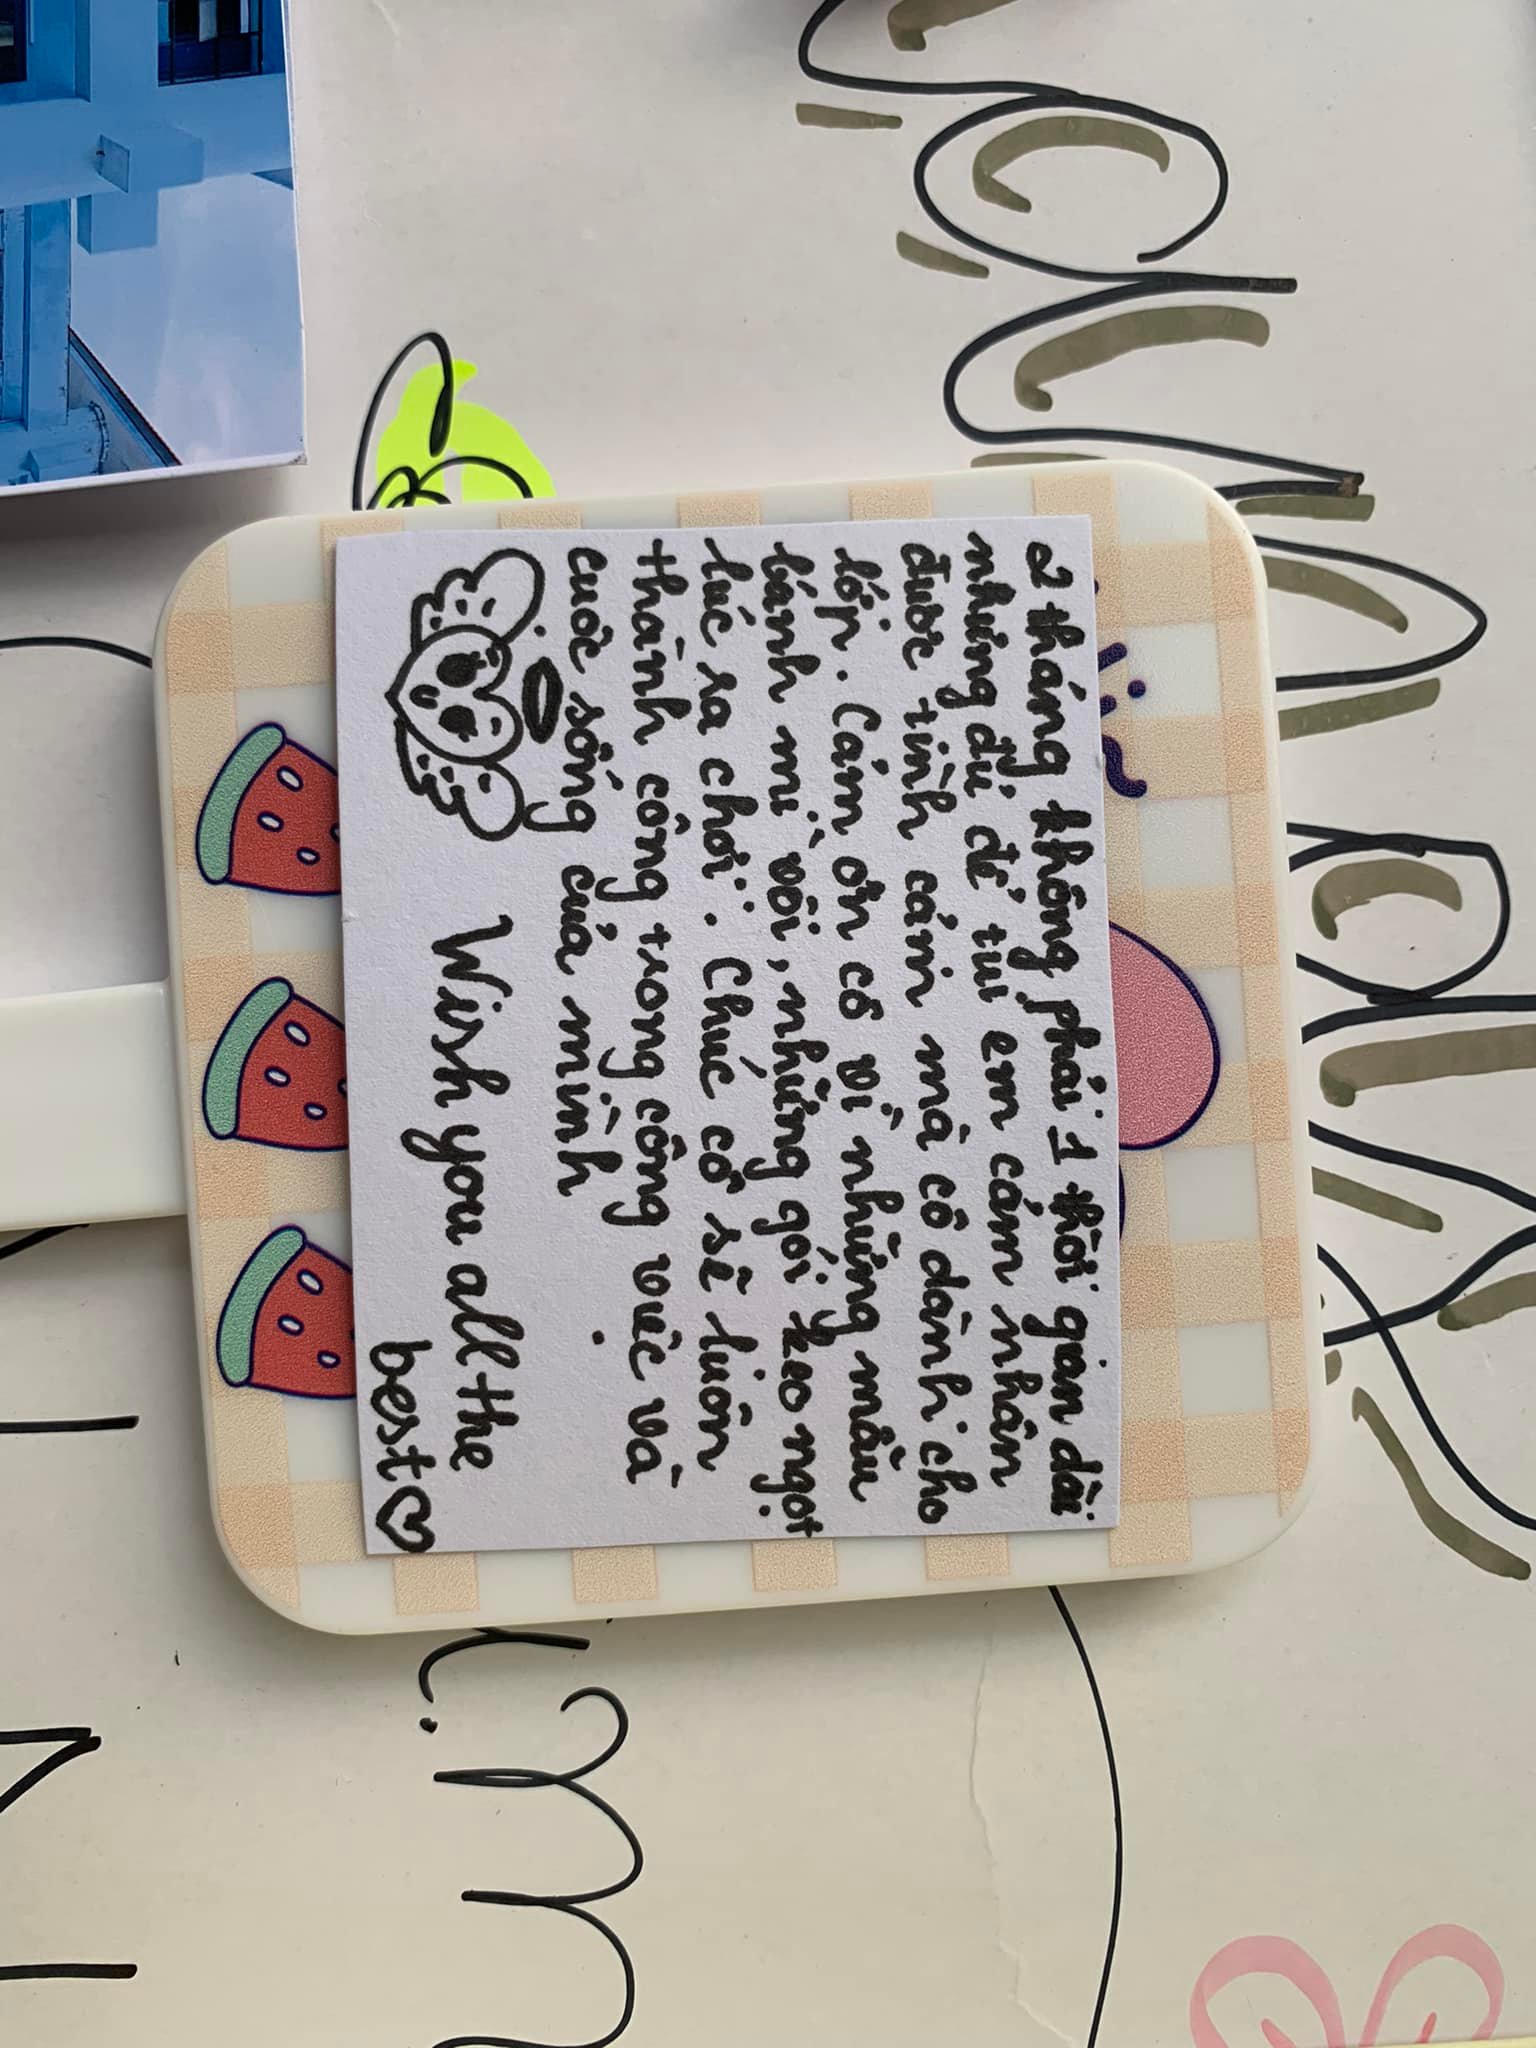 2 tháng không phải 1 thời gian dài
nhưng đủ để tụi em cảm nhận
được tình cảm mà cô dành cho
lớp. Cảm ơn cô vì những mẫu
bánh mì vội, những gói kẹo ngọt
lúc ra chơi. Chúc cô sẽ luôn
thành công trong công việc và
cuộc sống của mình
Wish you all the
best